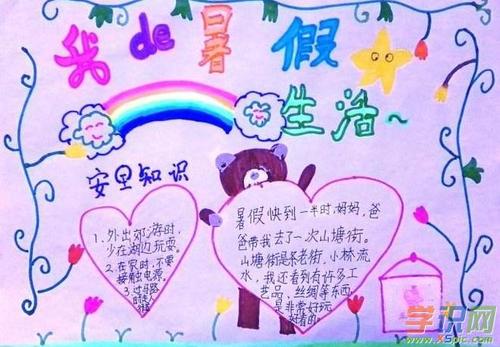 我de暑假
生活~
安里知识
1. 外出郊游时,
少在湖边玩耍。
2. 在家时,不要
接触电源。
3. 过马路
暑假快到一半时,妈妈,爸
爸带我去了一次山塘街。
山塘街是条老街,小桥流
水,我还看到有许多工
艺品,丝绸等东西
是非常好玩
好看的
学识网
www.XSpic.com